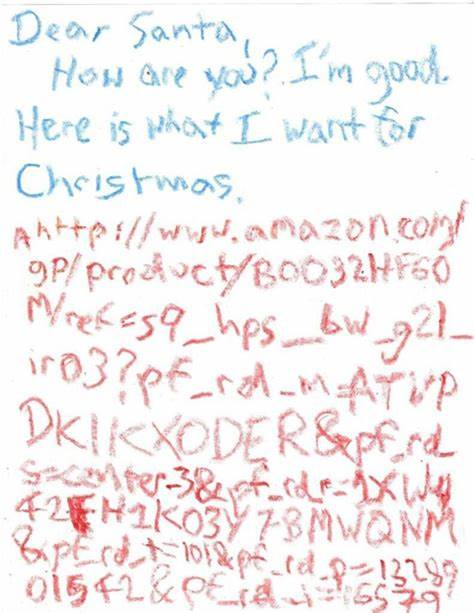 Dear Santa,
How are you? I'm good.
Here is what I want for
Christmas.
A http://www.amazon.com/
gp/product/B0032HF60
M/ref=s9_hps_bw_g21_
ir03?pf_rd_m=ATVP
DKIKX0DER&pf_rd_
s=center-3&pf_rd_r=1XWy
42FH1K03Y7BMWQNM
&pf_rd_t=101&pf_rd_p=13289
01542&pf_rd_i=16579